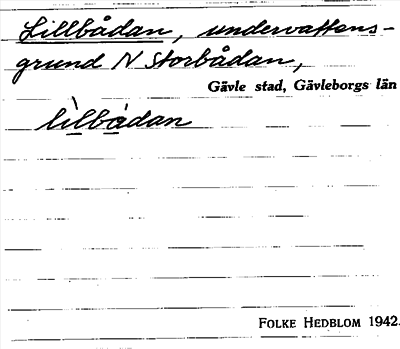 Lillbådan, undervattens-
grund N Storbådan,
Gävle stad, Gävleborgs län
lìlbådan
FOLKE HEDBLOM 1942.